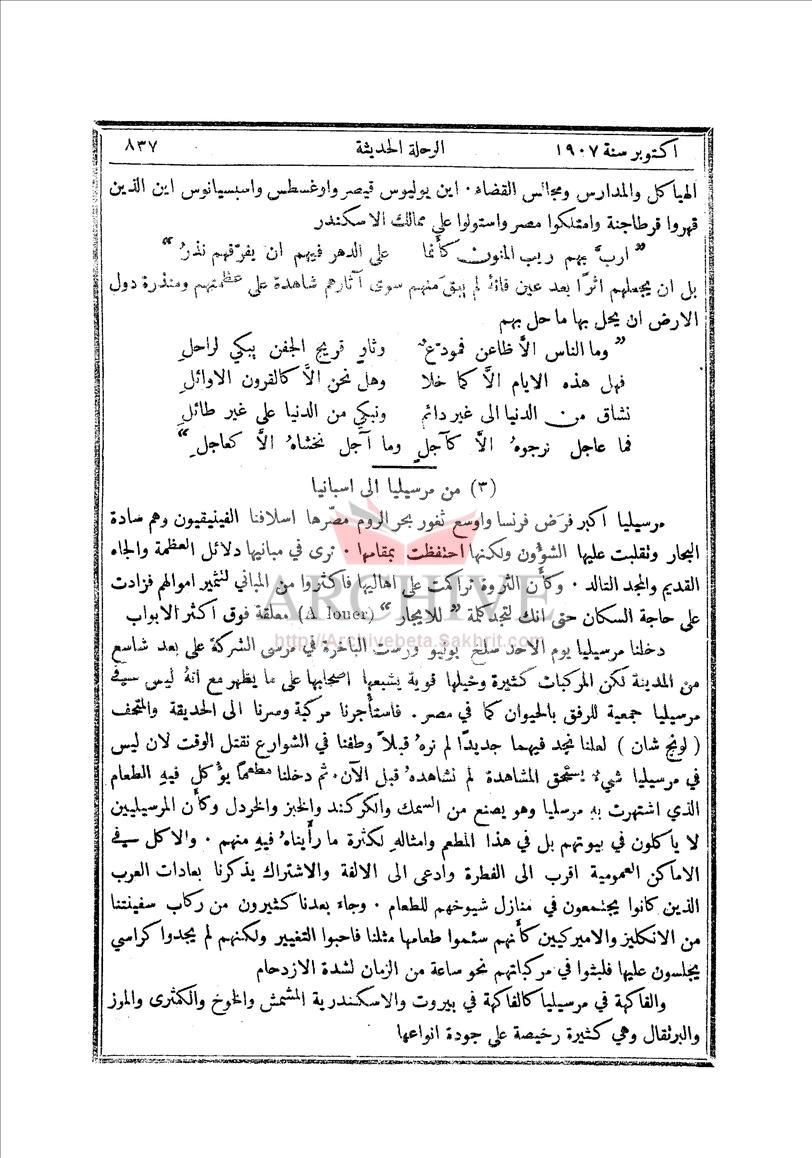 اكتوبر سنة ١٩٠٧ الرحلة الحديثة ٨٣٧
الهياكل والمدارس ومجالس القضاء . اين يوليوس قيصر واوغسطس واسبسيانوس اين الذين
قهروا قرطاجنة وامتلكوا مصر واستولوا على ممالك الاسكندر
” اربَّ بهم ريب المنون كأنما على الدهر فيهم ان يفرّقهم نذرُ “
بل ان يجعلهم اثرًا بعد عين فانهُ لم يبقَ منهم سوى آثارهم شاهدة على عظمتهم ومنذرة دول
الارض ان يحل بها ما حل بهم
” وما الناس الاَّ ظاعن فمودعٌ وثاوٍ قريح الجفن يبكي لراحلِ
فهل هذه الايام الاَّ كما خلا وهل نحن الاَّ كالقرون الاوائلِ
نشاق من الدنيا الى غير دائم ونبكي من الدنيا على غير طائلِ
فما عاجل نرجوهُ الاَّ كآجلٍ وما آجل نخشاهُ الاَّ كعاجلِ “
(٣) من مرسيليا الى اسبانيا
مرسيليا اكبر فرَض فرنسا واوسع ثغور بحر الروم مصّرها اسلافنا الفينيقيون وهم سادة
البحار وتقلبت عليها الشؤون ولكنها احتفظت بمقامها . ترى في مبانيها دلائل العظمة والجاه
القديم والمجد التالد . وكأن الثروة تراكمت على اهاليها فاكثروا من المباني لتثمير اموالهم فزادت
على حاجة السكان حتى انك لتجد كلمة ” للايجار “ (A louer) معلقة فوق اكثر الابواب
دخلنا مرسيليا يوم الاحد صلخ يونيو ورست الباخرة في مرسى الشركة على بعد شاسع
من المدينة لكن المركبات كثيرة وخيلها قوية يشبعها اصحابها على ما يظهر مع انهُ ليس في
مرسيليا جمعية للرفق بالحيوان كما في مصر . فاستأجرنا مركبة وسرنا الى الحديقة والمتحف
( لونج شان ) لعلنا نجد فيهما جديدًا لم نرهُ قبلاً وطفنا في الشوارع نقتل الوقت لان ليس
في مرسيليا شيءٌ يستحق المشاهدة لم نشاهدهُ قبل الآن. ثم دخلنا مطعمًا يؤكل فيهِ الطعام
الذي اشتهرت به مرسليا وهو يصنع من السمك والكركند والخبز والخردل وكأن المرسيليين
لا ياكلون في بيوتهم بل في هذا المطعم وامثالهِ لكثرة ما رأيناهُ فيهِ منهم . والاكل في
الاماكن العمومية اقرب الى الفطرة وادعى الى الالفة والاشتراك يذكرنا بعادات العرب
الذين كانوا يجتمعون في منازل شيوخهم للطعام . وجاء بعدنا كثيرون من ركاب سفينتنا
من الانكليز والاميركيين كأنهم سئموا طعامها مثلنا فاحبوا التغيير ولكنهم لم يجدوا كراسي
يجلسون عليها فلبثوا في مركباتهم نحو ساعة من الزمان لشدة الازدحام
والفاكهة في مرسيليا كالفاكهة في بيروت والاسكندرية المشمش والخوخ والكمثرى والموز
والبرتقال وهي كثيرة رخيصة على جودة انواعها
ARCHIVE
http://Archivebeta.Sakhrit.com